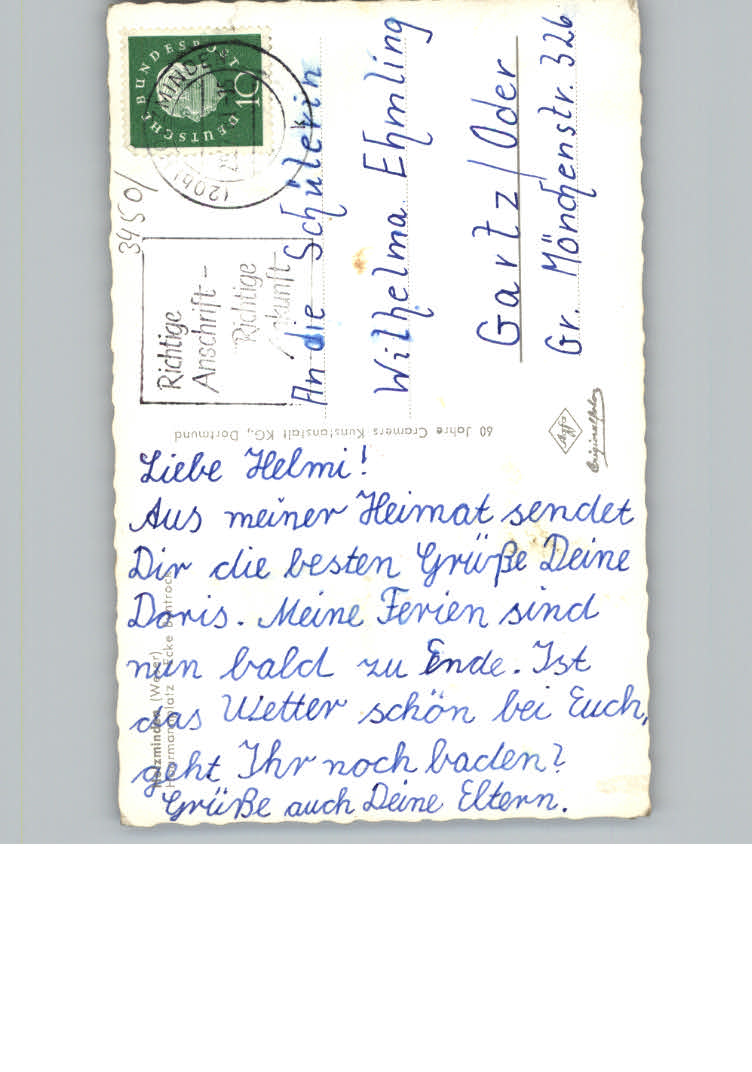 Liebe Helmi!
Aus meiner Heimat sendet
Dir die besten Grüße Deine
Doris. Meine Ferien sind
nun bald zu Ende. Ist
das Wetter schön bei Euch,
geht Ihr noch baden?
Grüße auch Deine Eltern.
An die Schülerin
Wilhelma Ehmling
Gartz/Oder
Gr. Mönchenstr. 326
DEUTSCHE BUNDESPOST
10
3450/
Richtige
Anschrift -
Richtige
Ankunft
60 Jahre Cramers Kunstanstalt KG., Dortmund
Agfa
Originalfoto
Holzminden (Weser)
Haarmannplatz Ecke